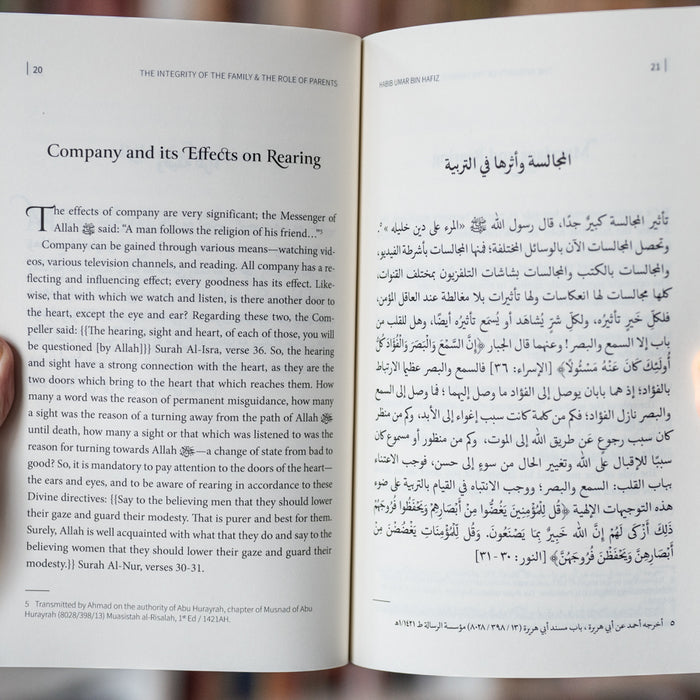 | 20
THE INTEGRITY OF THE FAMILY & THE ROLE OF PARENTS
Company and its Effects on Rearing
The effects of company are very significant; the Messenger of
Allah ﷺ said: "A man follows the religion of his friend..."⁵
Company can be gained through various means—watching vid-
eos, various television channels, and reading. All company has a re-
flecting and influencing effect; every goodness has its effect. Like-
wise, that with which we watch and listen, is there another door to
the heart, except the eye and ear? Regarding these two, the Com-
peller said: {{The hearing, sight and heart, of each of those, you will
be questioned [by Allah]}} Surah Al-Isra, verse 36. So, the hearing
and sight have a strong connection with the heart, as they are the
two doors which bring to the heart that which reaches them. How
many a word was the reason of permanent misguidance, how many
a sight was the reason of a turning away from the path of Allah ﷻ
until death, how many a sight or that which was listened to was the
reason for turning towards Allah ﷻ—a change of state from bad to
good? So, it is mandatory to pay attention to the doors of the heart—
the ears and eyes, and to be aware of rearing in accordance to these
Divine directives: {{Say to the believing men that they should lower
their gaze and guard their modesty. That is purer and best for them.
Surely, Allah is well acquainted with what that they do and say to the
believing women that they should lower their gaze and guard their
modesty.}} Surah Al-Nur, verses 30-31.
5 Transmitted by Ahmad on the authority of Abu Hurayrah, chapter of Musnad of Abu
Hurayrah (8028/398/13) Muasistah al-Risalah, 1st Ed / 1421AH.
HABIB UMAR BIN HAFIZ
21 |
المجالسة وأثرها في التربية
تأثير المجالسة كبيرٌ جدًا، قال رسول الله ﷺ «المرء على دين خليله»⁵.
وتحصل المجالسات الآن بالوسائل المختلفة؛ فمنها المجالسات بأشرطة الفيديو،
والمجالسات بالكتب والمجالسات بشاشات التلفزيون بمختلف القنوات،
كلها مجالسات لها انعكاسات ولها تأثيرات بلا مغالطة عند العاقل المؤمن،
فلكلِّ خيرٍ تأثيرُه، ولكلِّ شرٍّ يُشاهَد أو يُسمَع تأثيرُه أيضًا، وهل للقلب من
باب إلا السمع والبصر! وعنهما قال الجبار ﴿إِنَّ السَّمْعَ وَالْبَصَرَ وَالْفُؤَادَ كُلُّ
أُولَئِكَ كَانَ عَنْهُ مَسْئُولًا﴾ [الإسراء: ٣٦] فالسمع والبصر عظيما الارتباط
بالفؤاد؛ إذ هما بابان يوصل إلى الفؤاد ما وصل إليهما؛ فما وصل إلى السمع
والبصر نازل الفؤاد؛ فكم من كلمة كانت سبب إغواء إلى الأبد، وكم من منظر
كان سبب رجوعٍ عن طريق الله إلى الموت، وكم من منظور أو مسموع كان
سببًا للإقبال على الله وتغيير الحال من سوءٍ إلى حسن، فوجب الاعتناء
بباب القلب: السمع والبصر؛ ووجب الانتباه في القيام بالتربية على ضوء
هذه التوجيهات الإلهية ﴿قُل لِّلْمُؤْمِنِينَ يَغُضُّوا مِنْ أَبْصَارِهِمْ وَيَحْفَظُوا فُرُوجَهُمْ
ذَلِكَ أَزْكَى لَهُمْ إِنَّ اللَّهَ خَبِيرٌ بِمَا يَصْنَعُونَ. وَقُل لِّلْمُؤْمِنَاتِ يَغْضُضْنَ مِنْ
أَبْصَارِهِنَّ وَيَحْفَظْنَ فُرُوجَهُنَّ﴾ [النور: ٣٠-٣١]
٥ أخرجه أحمد عن أبي هريرة، باب مسند أبي هريرة (١٣ / ٣٩٨ / ٨٠٢٨) مؤسسة الرسالة ط ١/١٤٢١هـ